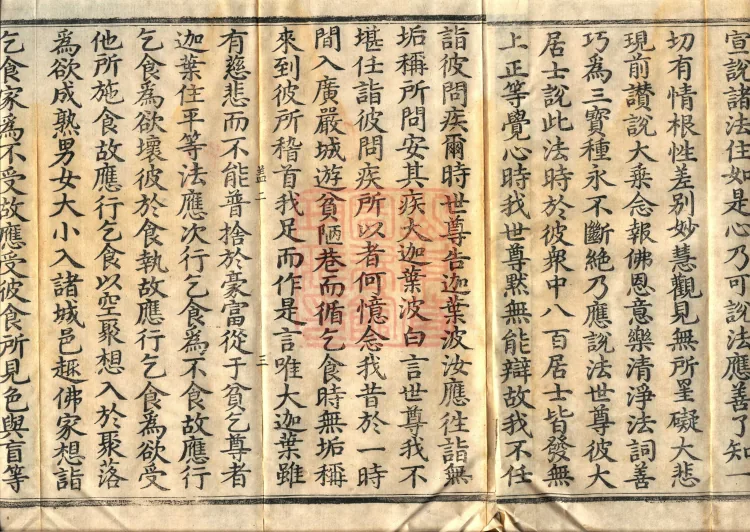 宣說諸法住如是心乃可說法應善了知一
切有情根性差別妙慧觀見無所罣礙大悲
現前讃說大乗念報佛恩意樂清淨法詞善
巧為三寳種永不斷絶乃應說法世尊彼大
居士說此法時於彼衆中八百居士皆發無
上正等覺心時我世尊黙無能辯故我不任
詣彼問疾爾時世尊告迦葉波汝應徃詣無
垢稱所問安其疾大迦葉波白言世尊我不
堪任詣彼問疾所以者何憶念我昔於一時
間入廣嚴城遊貧陋巷而循乞食時無垢稱
來到彼所稽首我足而作是言唯大迦葉雖
盖二 三
有慈悲而不能普捨於豪富從于貧乞尊者
迦葉住平等法應次行乞食為不食故應行
乞食爲欲壞彼於食執故應行乞食爲欲受
他所施食故應行乞食以空聚想入於聚落
爲欲成熟男女大小入諸城邑趣佛家想詣
乞食家爲不受故應受彼食所見色與盲等